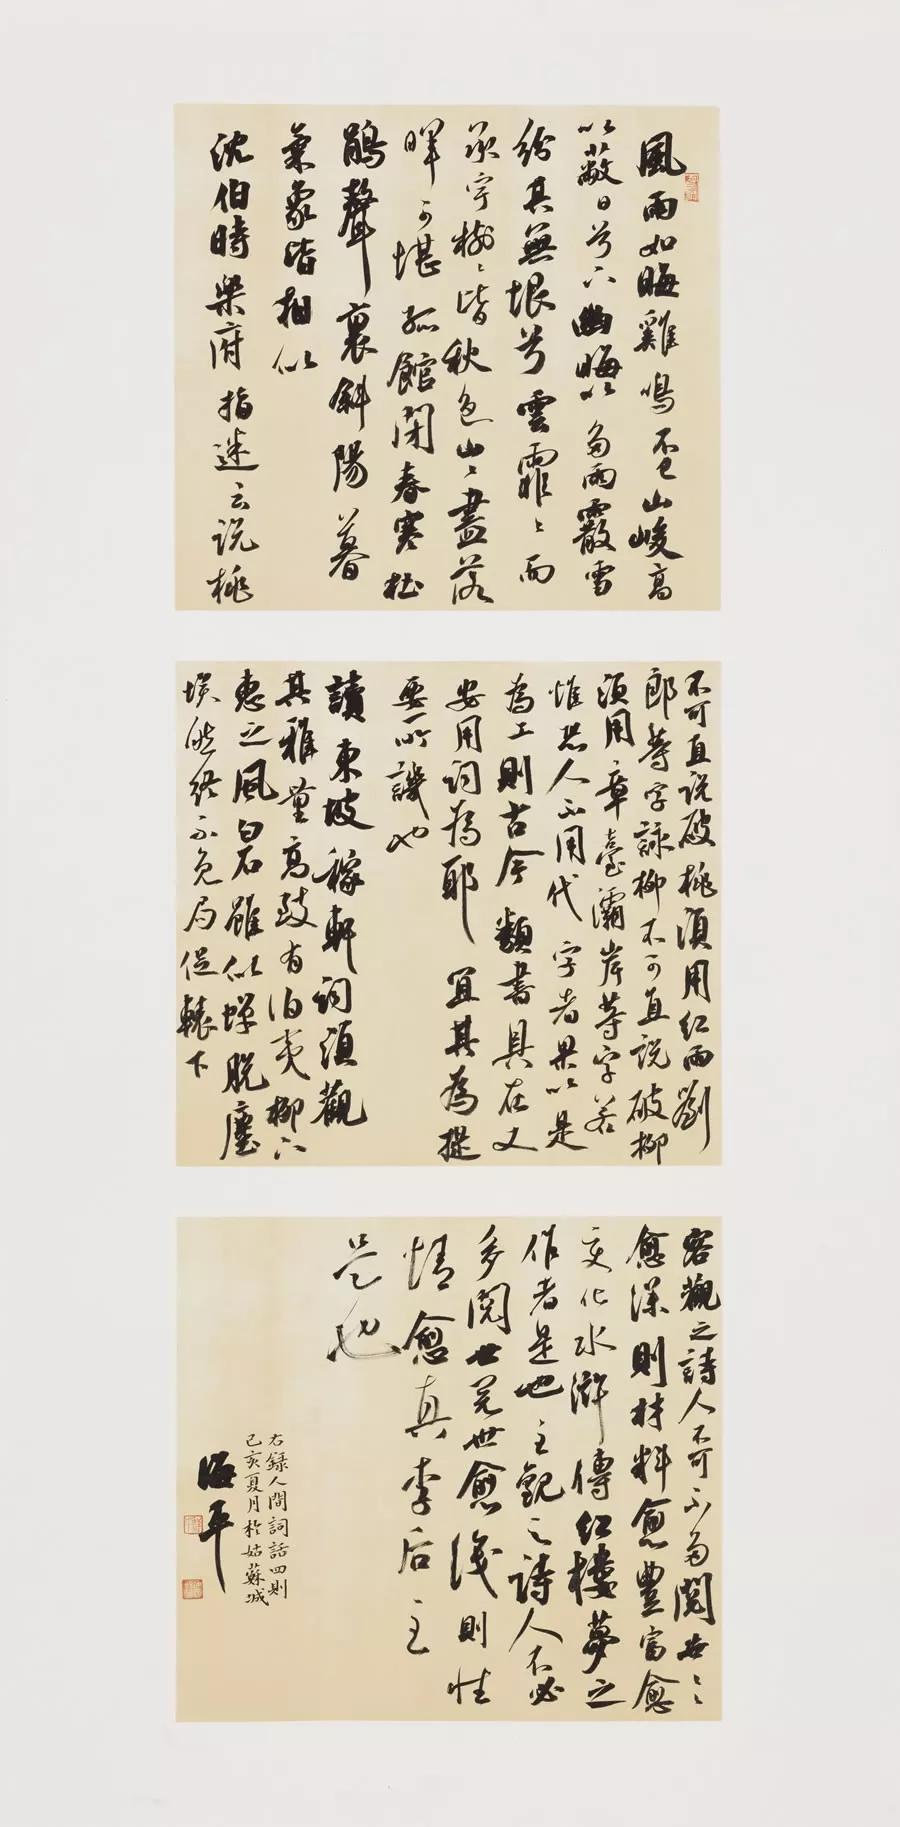 風雨如晦雞鳴不已山峻高
以蔽日兮下幽晦以多雨霰雪
紛其無垠兮雲霏〻而
承宇樹〻皆秋色山〻盡落
暉可堪孤館閉春寒杜
鵑聲裏斜陽暮
氣象皆相似
沈伯時樂府指迷云説桃
不可直説破桃須用紅雨劉
郎等字詠柳不可直説破柳
須用章臺灞岸等字若
惟恐人不用代字者果以是
為工則古今類書具在又
安用詞為耶宜其為提
要所譏也
讀東坡稼軒詞須觀
其雅量高致有伯夷柳下
惠之風白石雖似蟬脱塵
埃然終不免局促轅下
客觀之詩人不可不多閲世〻
愈深則材料愈豐富愈
變化水滸傳紅樓夢之
作者是也主觀之詩人不必
多閲世閲世愈淺則性
情愈真李后主
是也
右録人間詞話四則
己亥夏月於姑蘇城
海平